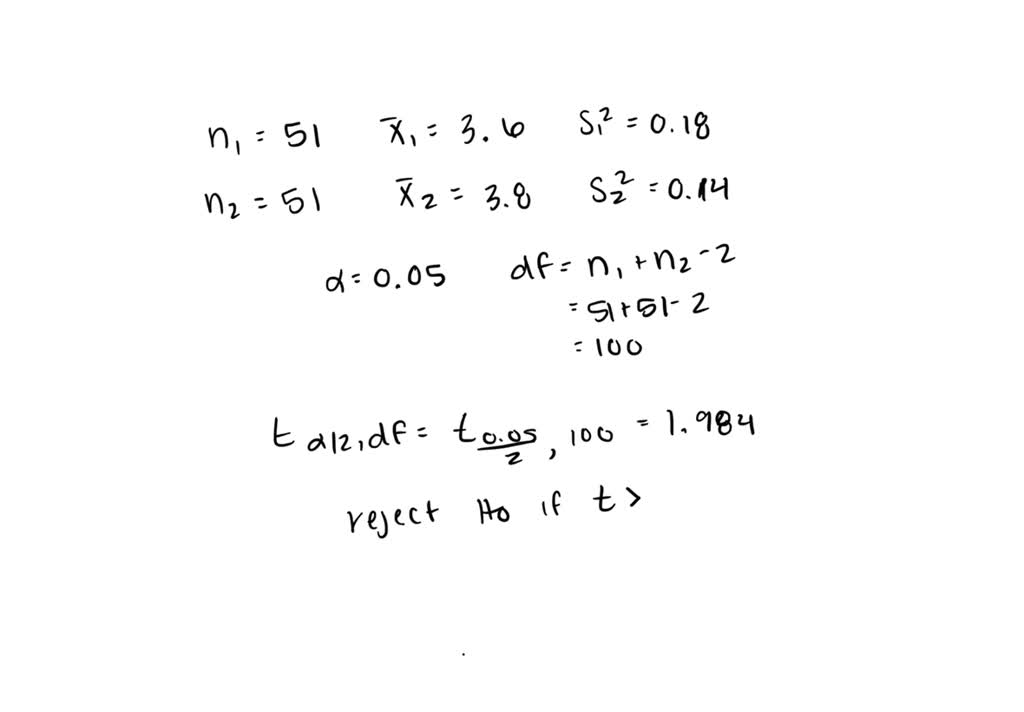 n₁ = 51 x̄₁ = 3.6 S₁² = 0.18
n₂ = 51 x̄₂ = 3.8 S₂² = 0.14
α = 0.05 df = n₁ + n₂ - 2
= 51 + 51 - 2
= 100
t α/2, df = t 0.05/2, 100 = 1.984
reject H0 if t >